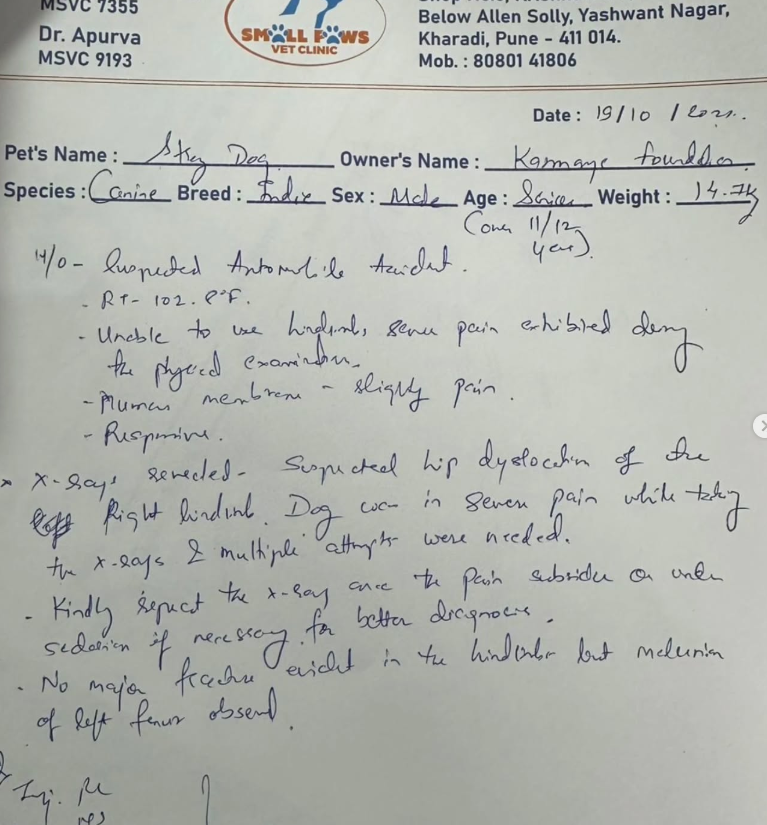 MSVC 7355
Dr. Apurva
MSVC 9193
SMALL PAWS
VET CLINIC
Below Allen Solly, Yashwant Nagar,
Kharadi, Pune - 411 014.
Mob. : 80801 41806
Date : 19/10 /
Pet's Name : Stray Dog Owner's Name :
Species : Canine Breed : Indie Sex : Male Age : Senior Weight : 14.7k
(over 11/12
years).
H/O - Suspected Automobile Accident.
- RT- 102.8°F.
- Unable to use hindlimbs, severe pain exhibited during
the physical examination.
- Mucous membrane - slightly
- Responsive.
X-Rays revealed - Suspected hip dyslocation of the
Right hindlimb. Dog was in severe pain while taking
the X-Rays & multiple attempts were needed.
- Kindly repeat the X-Ray once the pain subsides or under
sedation if necessary for better diagnosis.
- No major fracture evident in the hindlimbs but malunion
of left femur observed.
Inj.